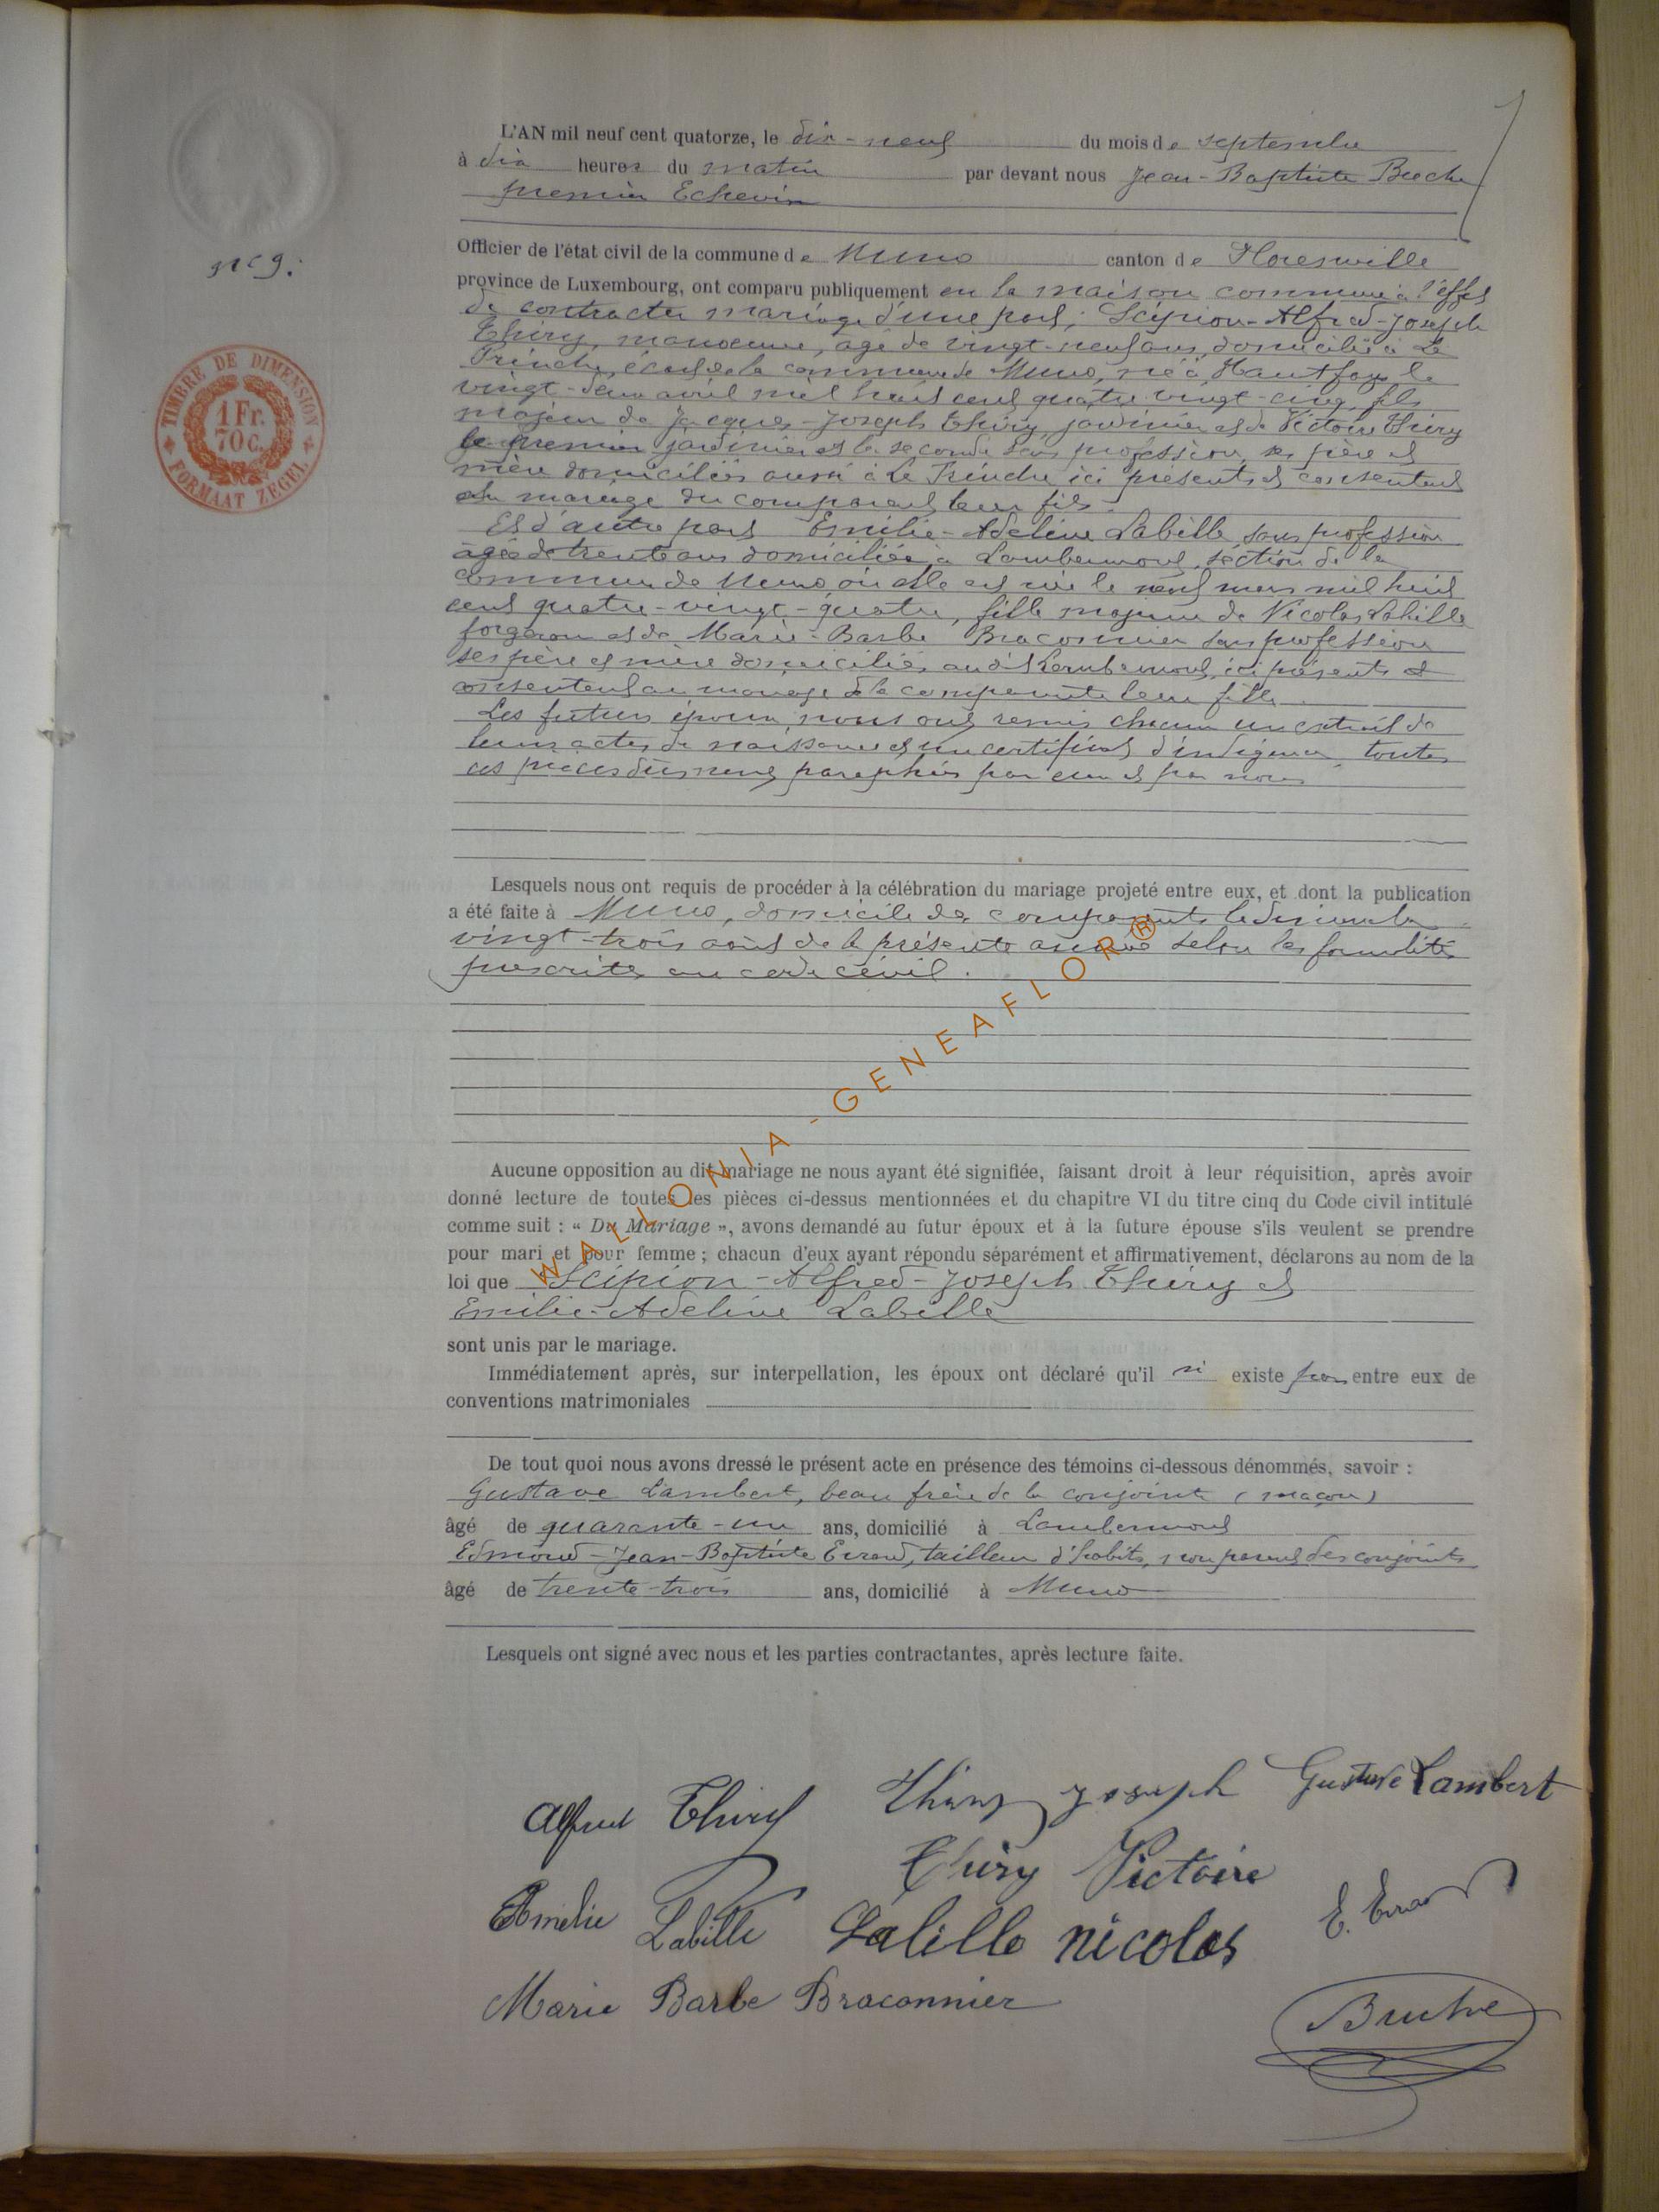 L'AN mil neuf cent quatorze, le dix-neuf du mois de septembre
à dix heures du matin par devant nous Jean-Baptiste
premier Echevin
n° 9.
Officier de l'état civil de la commune de Muno canton de Florenville
province de Luxembourg, ont comparu publiquement en la maison commune à l'effet
de contracter mariage d'une part; Scipion-Alfred-Joseph
Thiry, manoeuvre, âgé de vingt-neuf ans, domicilié à Le
écart de la commune de Muno, né à Hautfays le
vingt-deux avril mil huit cent quatre-vingt-cinq, fils
majeur de Jacques-Joseph Thiry, jardinier et de Victoire Thiry
le premier jardinier et la seconde sans profession, ses père et
mère domiciliés aussi à Le ici présents et consentant
au mariage du comparant leur fils.
Et d'autre part Emilie-Adeline Labille sans profession
âgée de trente ans domiciliée à Lambermont, section de la
commune de Muno où elle est née le neuf mars mil huit
cent quatre-vingt-quatre, fille majeure de Nicolas Labille
forgeron et de Marie-Barbe Braconnier sans profession
ses père et mère domiciliés audit Lambermont, ici présents et
consentant au mariage de la comparante leur fille.
Les futurs époux nous ont remis chacun un extrait de
leurs actes de naissance et un certificat d'indigence, toutes
ces pièces dûment paraphées par eux et par nous
TIMBRE DE DIMENSION
1 Fr.
70 C.
FORMAAT ZEGEL
Lesquels nous ont requis de procéder à la célébration du mariage projeté entre eux, et dont la publication
a été faite à Muno, domicile des comparants le dimanche
vingt-trois août de la présente année selon les formalités
prescrites au code civil.
Aucune opposition au dit mariage ne nous ayant été signifiée, faisant droit à leur réquisition, après avoir
donné lecture de toutes les pièces ci-dessus mentionnées et du chapitre VI du titre cinq du Code civil intitulé
comme suit : « Du Mariage », avons demandé au futur époux et à la future épouse s'ils veulent se prendre
pour mari et pour femme ; chacun d'eux ayant répondu séparément et affirmativement, déclarons au nom de la
loi que Scipion-Alfred-Joseph Thiry et
Emilie-Adeline Labille
sont unis par le mariage.
Immédiatement après, sur interpellation, les époux ont déclaré qu'il n' existe pas entre eux de
conventions matrimoniales
De tout quoi nous avons dressé le présent acte en présence des témoins ci-dessous dénommés, savoir :
Gustave Lambert, beau frère de la conjointe (maçon)
âgé de quarante-un ans, domicilié à Lambermont
Edmond-Jean-Baptiste Evrard, tailleur d'habits, non parent des conjoints
âgé de trente-trois ans, domicilié à Muno
Lesquels ont signé avec nous et les parties contractantes, après lecture faite.
Alfred Thiry Thiry Joseph Gustave Lambert
Thiry Victoire
Labille Labille Nicolas E. Evrard
Marie Barbe Braconnier
WALLONIA-GENEAFLOR®